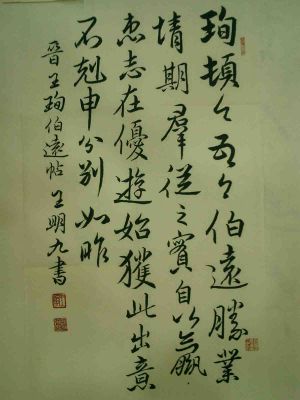 珣頓々首々伯遠勝業
情期羣從之賓自以羸
患志在優遊始獲此出意
不剋申分別如昨
晉王珣伯遠帖 王明九書